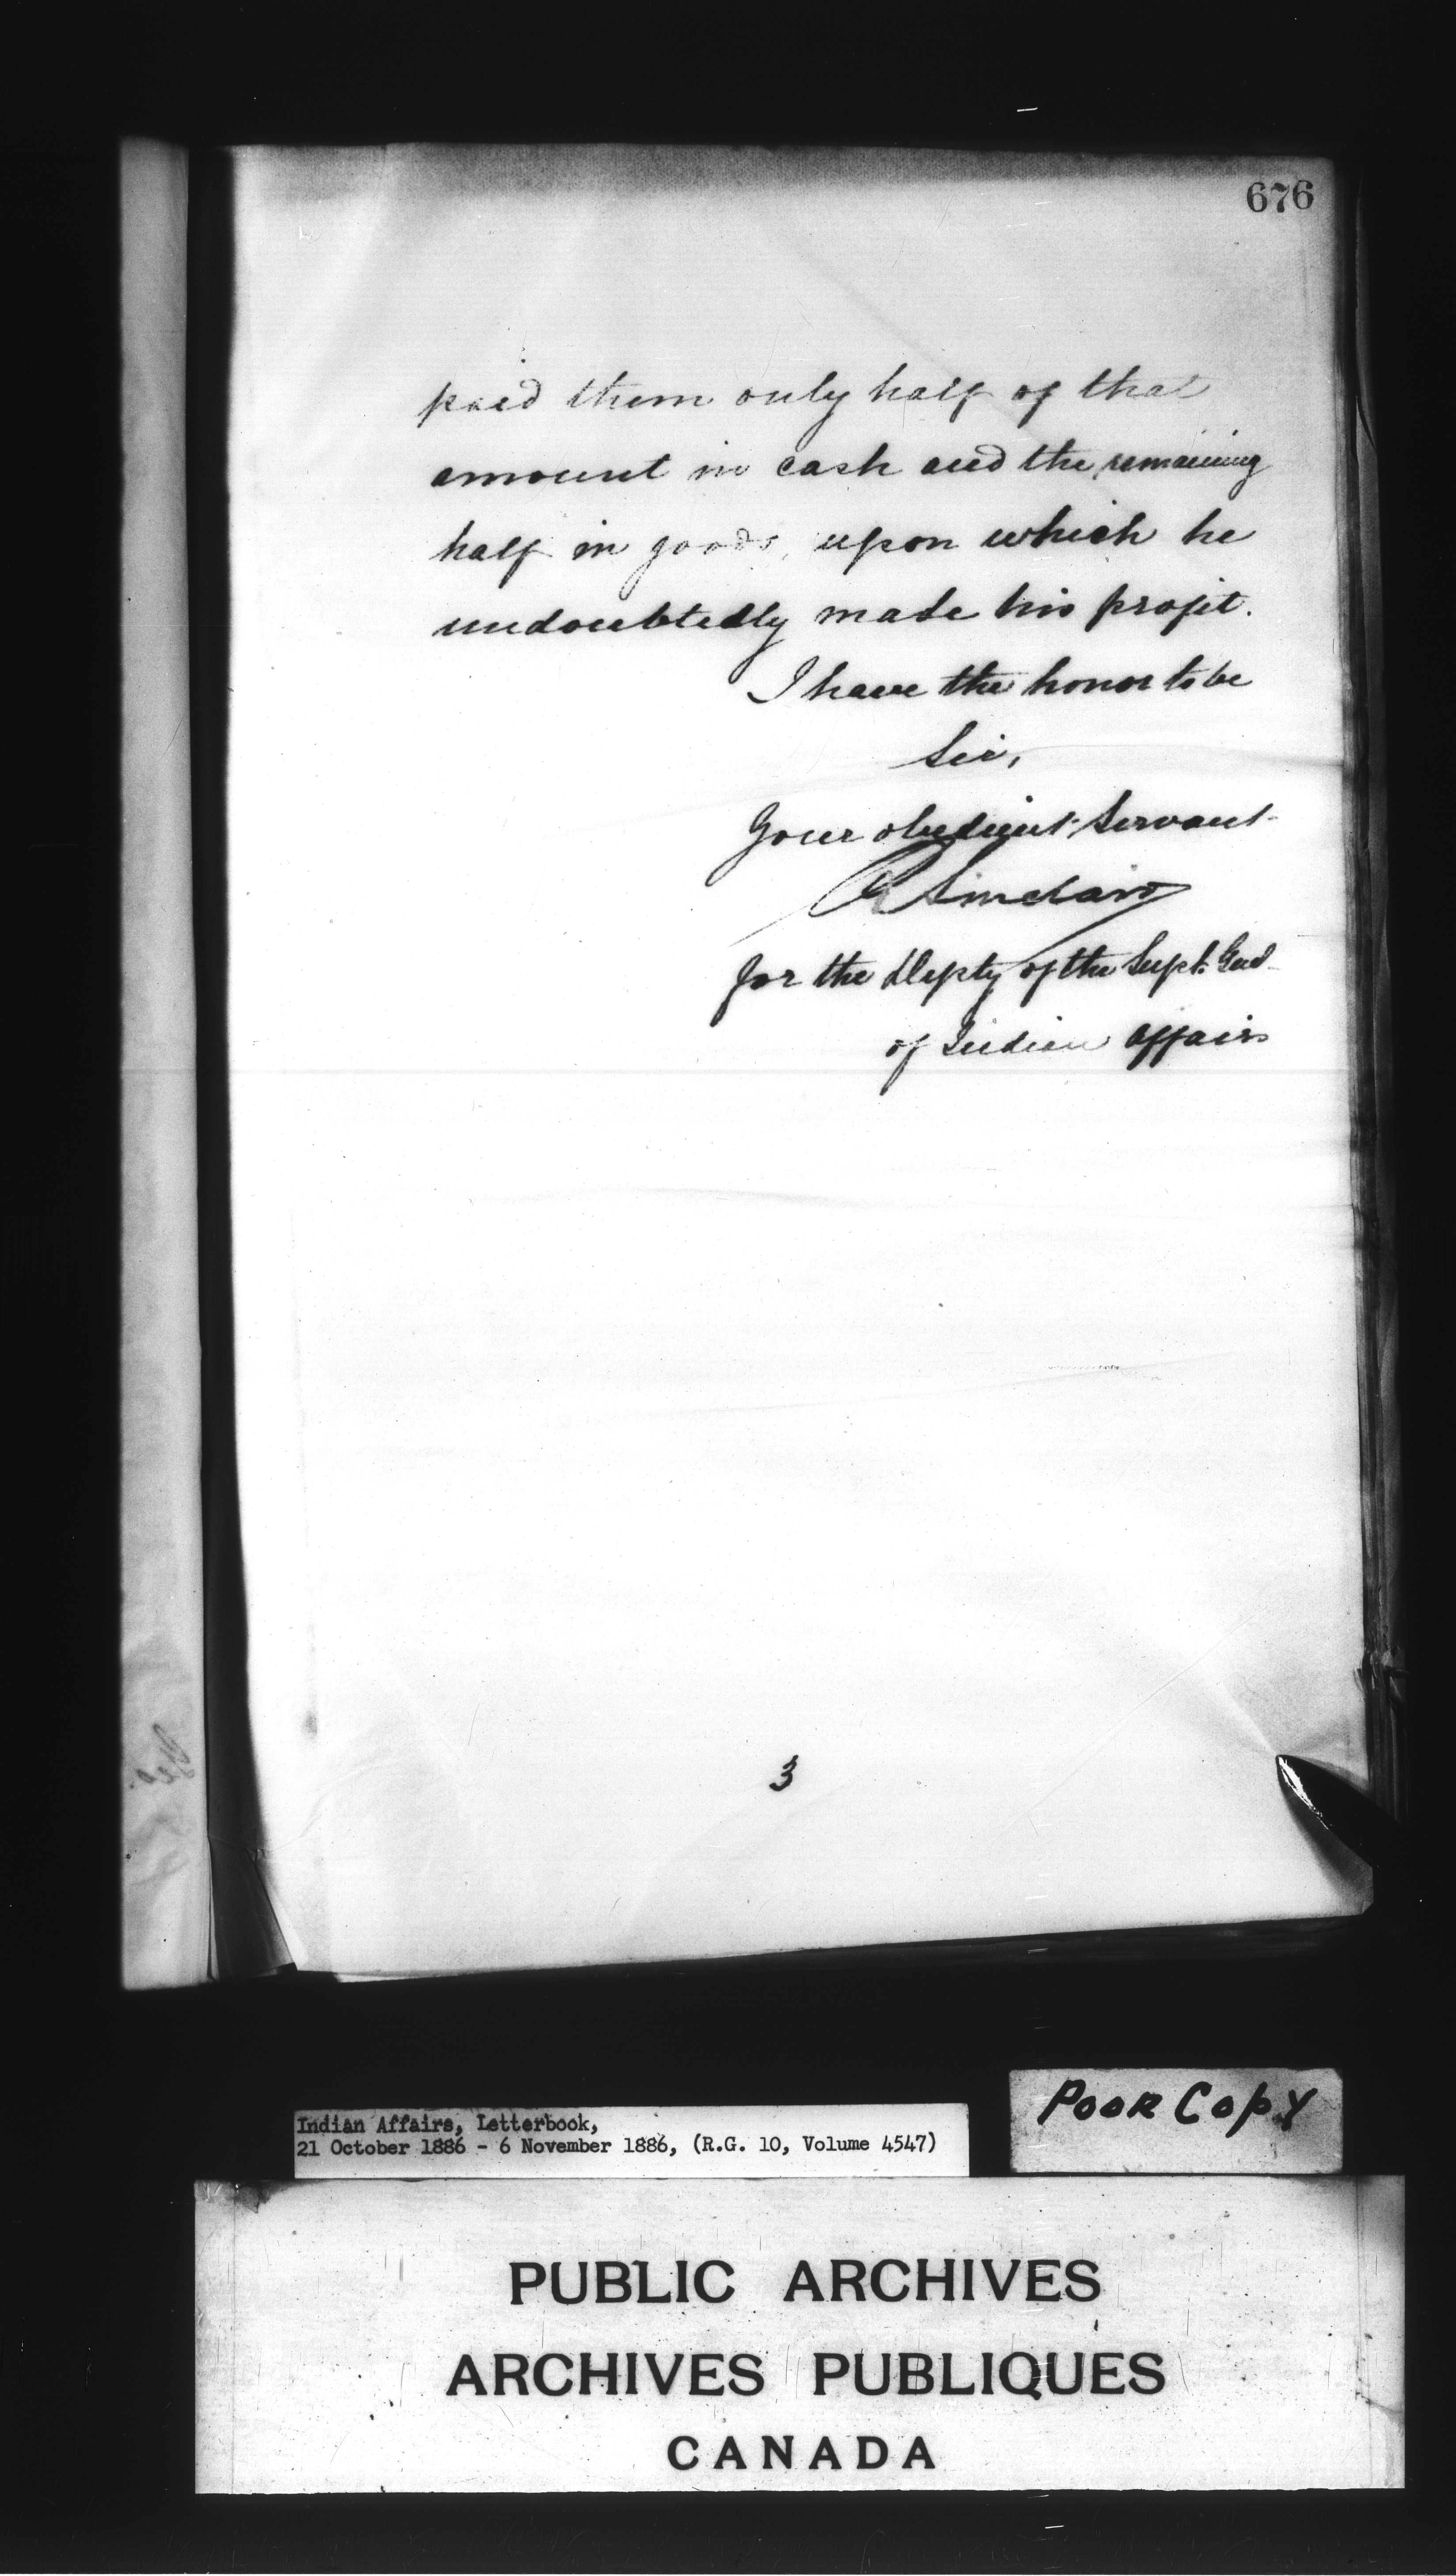 676
paid them only half of that
amount in cash and the remaining
half in goods, upon which he
undoubtedly made his profit.
I have the honor to be
Sir,
Your obedient Servant
Sinclair
for the Depty of the Supt. Genl
of Indian Affairs
3
Poor Copy
Indian Affairs, Letterbook,
21 October 1886 - 6 November 1886, (R.G. 10, Volume 4547)
PUBLIC ARCHIVES
ARCHIVES PUBLIQUES
CANADA